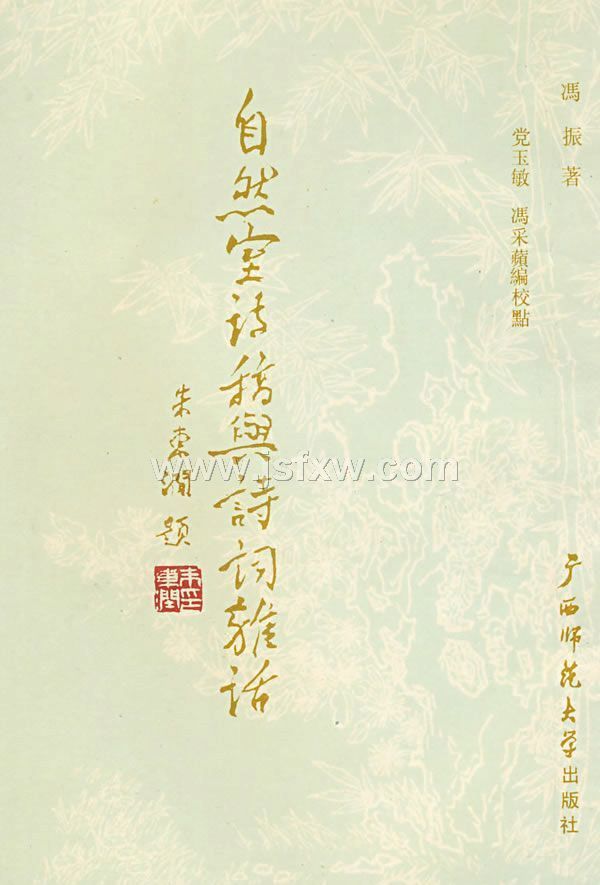 馮振著
党玉敏 馮采蘋編校點
自然室诗稿與詩词雜话
朱東潤題
朱東潤印
广西师范大学出版社
www.jsfxw.com